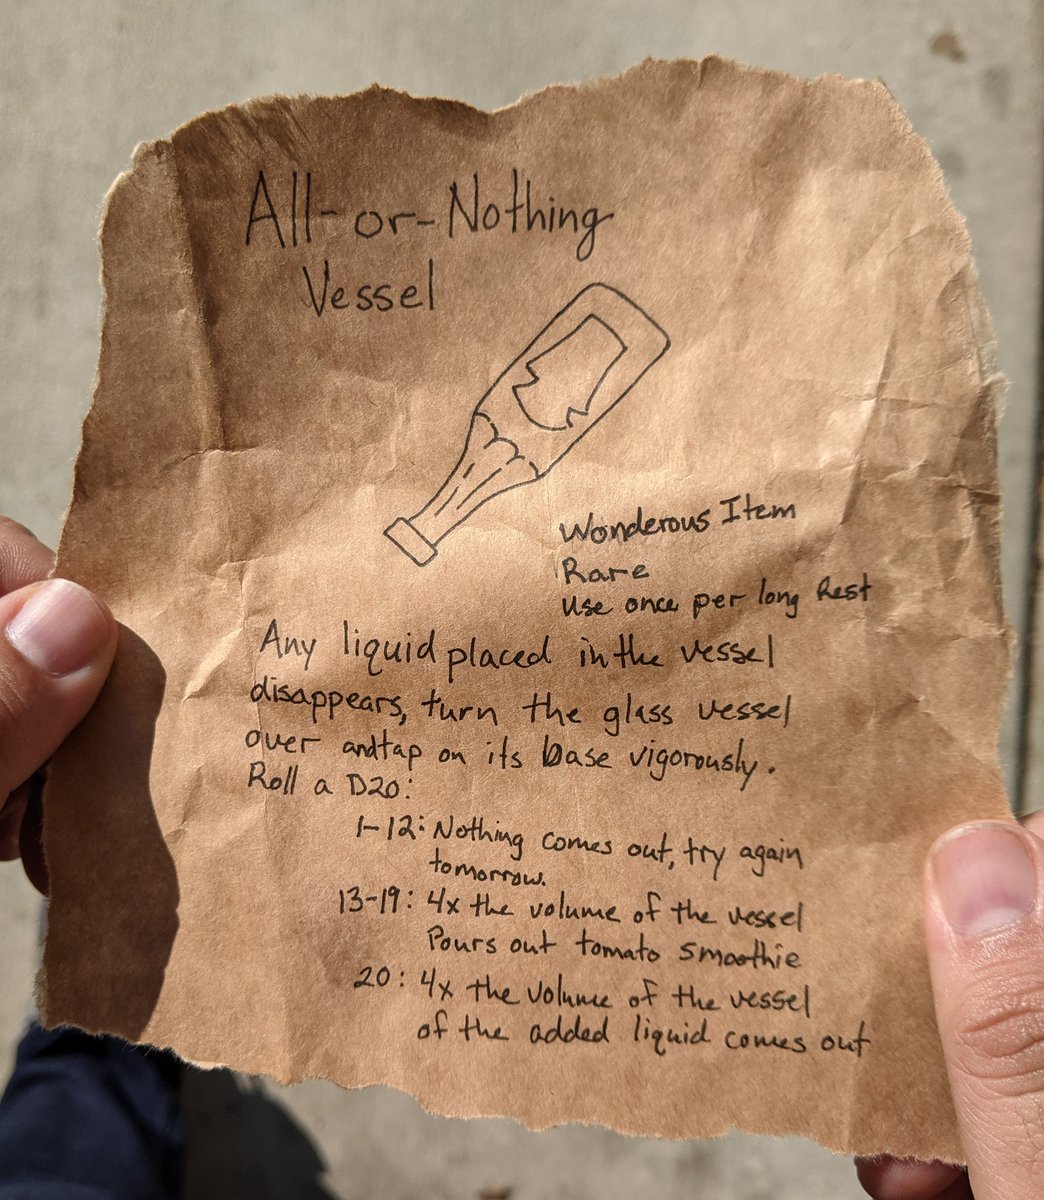 All-or-Nothing
Vessel
Wonderous Item
Rare
Use once per long Rest
Any liquid placed in the vessel
disappears, turn the glass vessel
over and tap on its base vigorously.
Roll a D20:
1-12: Nothing comes out, try again
tomorrow.
13-19: 4x the volume of the vessel
Pours out tomato smoothie
20: 4x the volume of the vessel
of the added liquid comes out